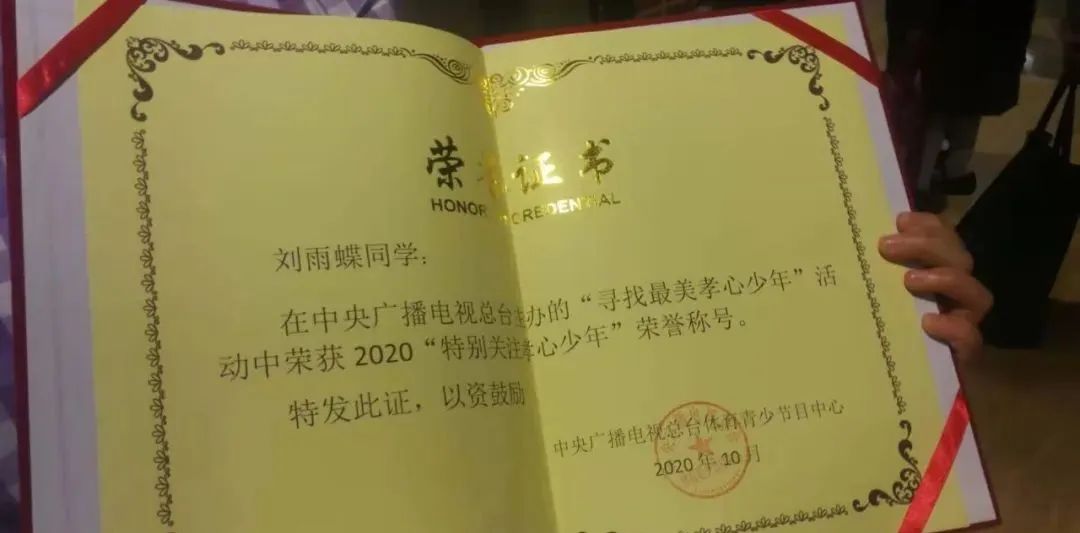 荣誉证书
HONOR CREDENTIAL
刘雨蝶同学：
在中央广播电视总台主办的“寻找最美孝心少年”活
动中荣获2020“特别关注孝心少年”荣誉称号。
特发此证，以资鼓励
中央广播电视总台体育青少节目中心
2020年10月